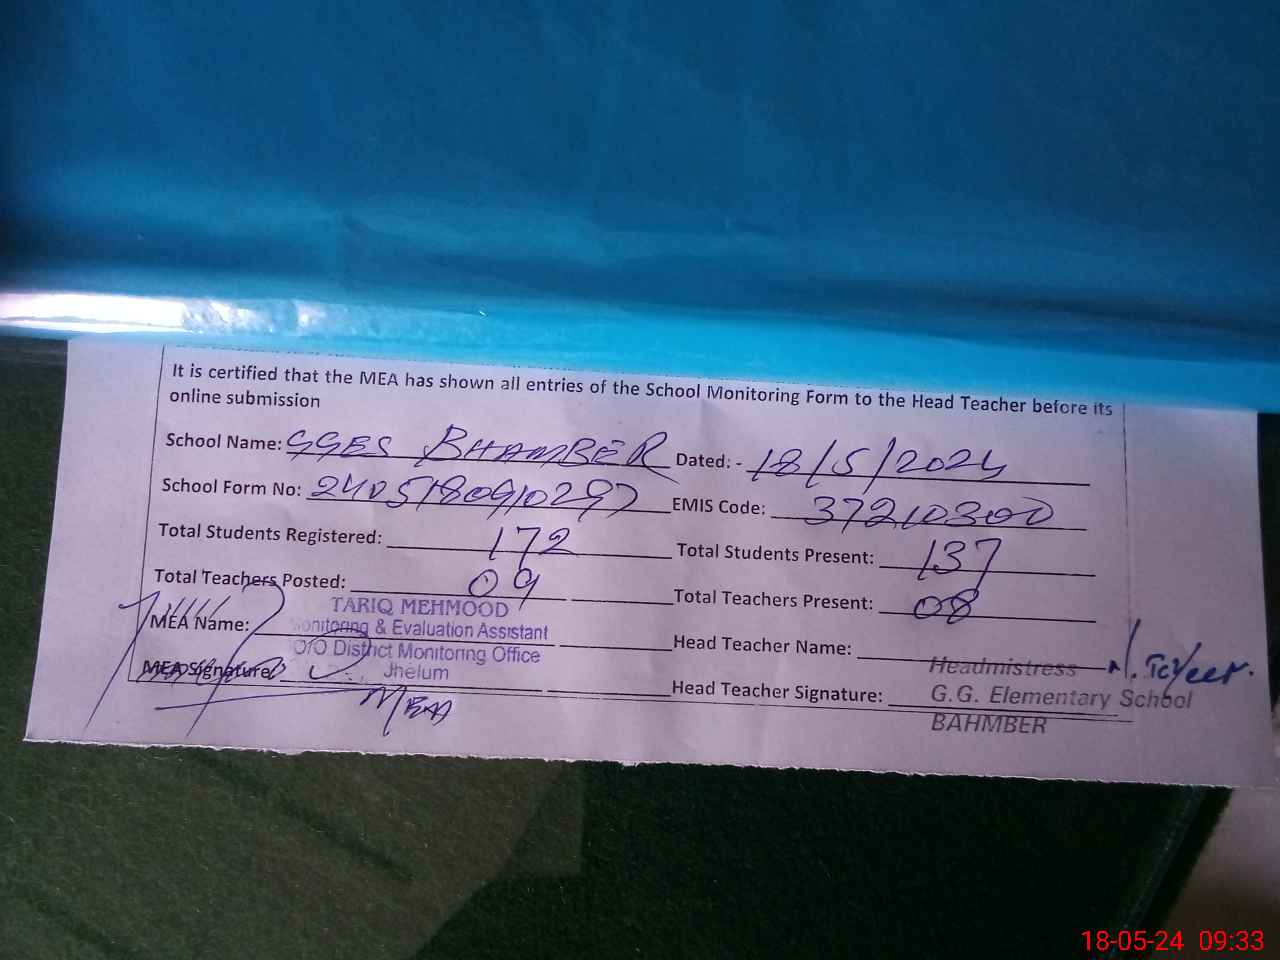 It is certified that the MEA has shown all entries of the School Monitoring Form to the Head Teacher before its
online submission
School Name: GGES BHAMBER Dated: - 18/5/2024
School Form No: 240518090297 EMIS Code: 37210300
Total Students Registered: 172 Total Students Present: 137
Total Teachers Posted: 09 Total Teachers Present: 08
MEA Name: TARIQ MEHMOOD
Monitoring & Evaluation Assistant
O/O District Monitoring Office
Jhelum
Head Teacher Name:
MEA Signature:
MEA
Head Teacher Signature:
Headmistress
G.G. Elementary School
BAHMBER
18-05-24 09:33